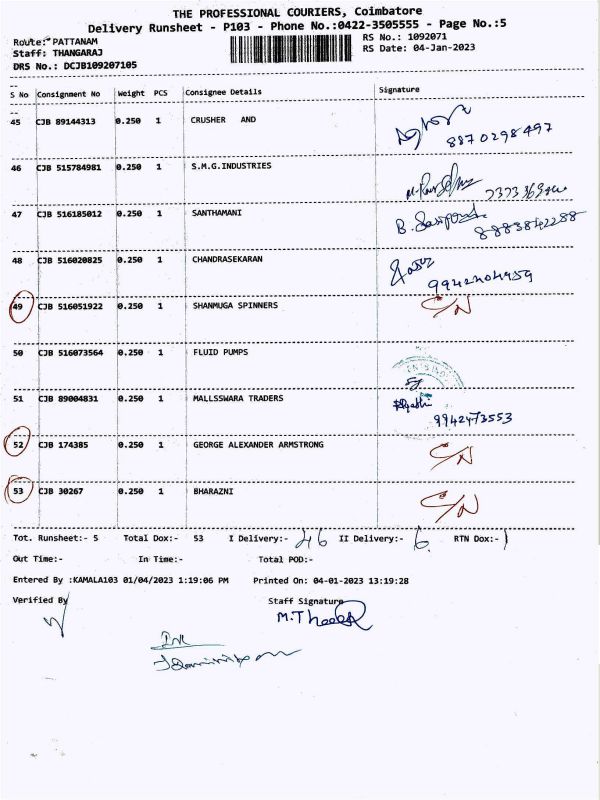 THE PROFESSIONAL COURIERS, Coimbatore
Delivery Runsheet - P103 - Phone No.:0422-3505555 - Page No.:5
Route: PATTANAM RS No.: 1092071
Staff: THANGARAJ RS Date: 04-Jan-2023
DRS No.: DCJB109207105
S No Consignment No Weight PCS Consignee Details Signature
45 CJB 89144313 0.250 1 CRUSHER AND
8870298497
46 CJB 515784981 0.250 1 S.M.G.INDUSTRIES
47 CJB 516185012 0.250 1 SANTHAMANI
8883842288
48 CJB 516020825 0.250 1 CHANDRASEKARAN
9942404959
49 CJB 516051922 0.250 1 SHANMUGA SPINNERS C/N
50 CJB 516073564 0.250 1 FLUID PUMPS
51 CJB 89004831 0.250 1 MALLSSWARA TRADERS
9942473553
52 CJB 174385 0.250 1 GEORGE ALEXANDER ARMSTRONG C/N
53 CJB 30267 0.250 1 BHARAZNI C/N
Tot. Runsheet:- 5 Total Dox:- 53 I Delivery:- 46 II Delivery:- 6 RTN Dox:- 1
Out Time:- In Time:- Total POD:-
Entered By :KAMALA103 01/04/2023 1:19:06 PM Printed On: 04-01-2023 13:19:28
Verified By Staff Signature